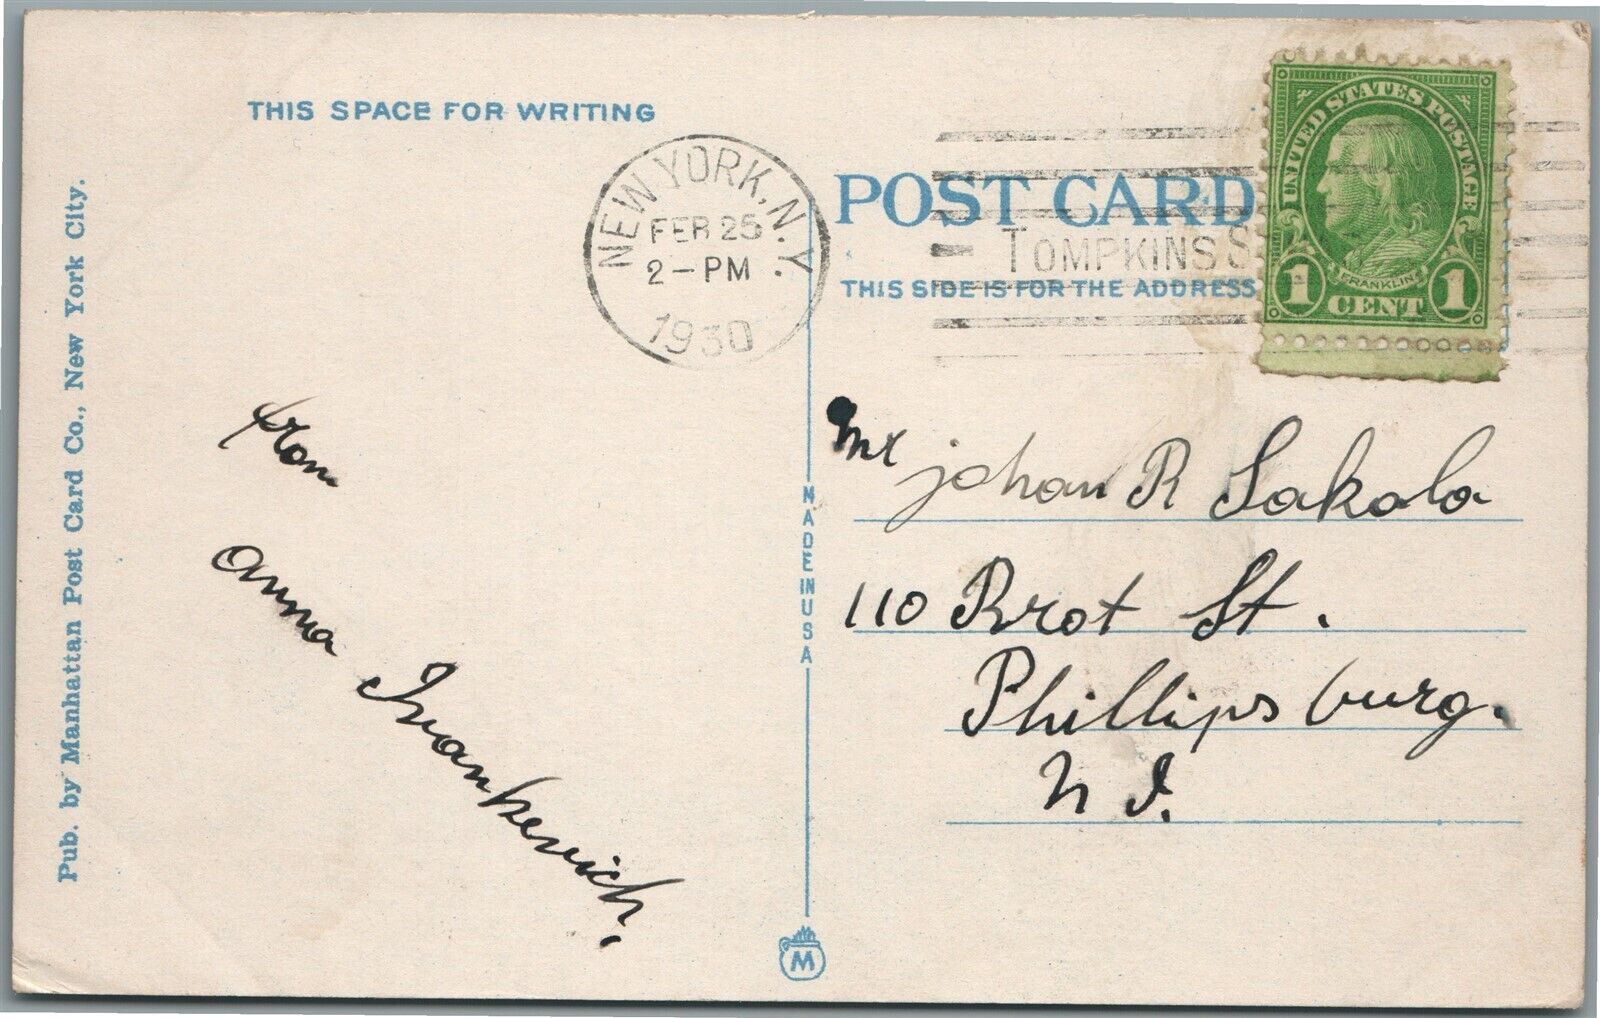 THIS SPACE FOR WRITING
Pub. by Manhattan Post Card Co., New York City.
NEW YORK, N.Y.
FEB 25
2-PM
1930
POST CARD
TOMPKINS S
THIS SIDE IS FOR THE ADDRESS
UNITED STATES POSTAGE
FRANKLIN
1 CENT 1
from
anna Ivankevich.
MADE IN USA
M
Mr johan R Sakala
110 Prot St.
Phillipsburg.
N J.